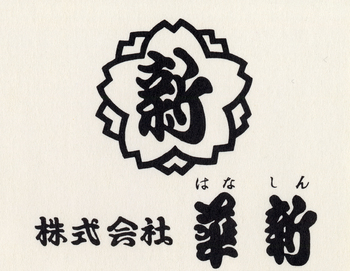 新
はなしん
株式会社 華新